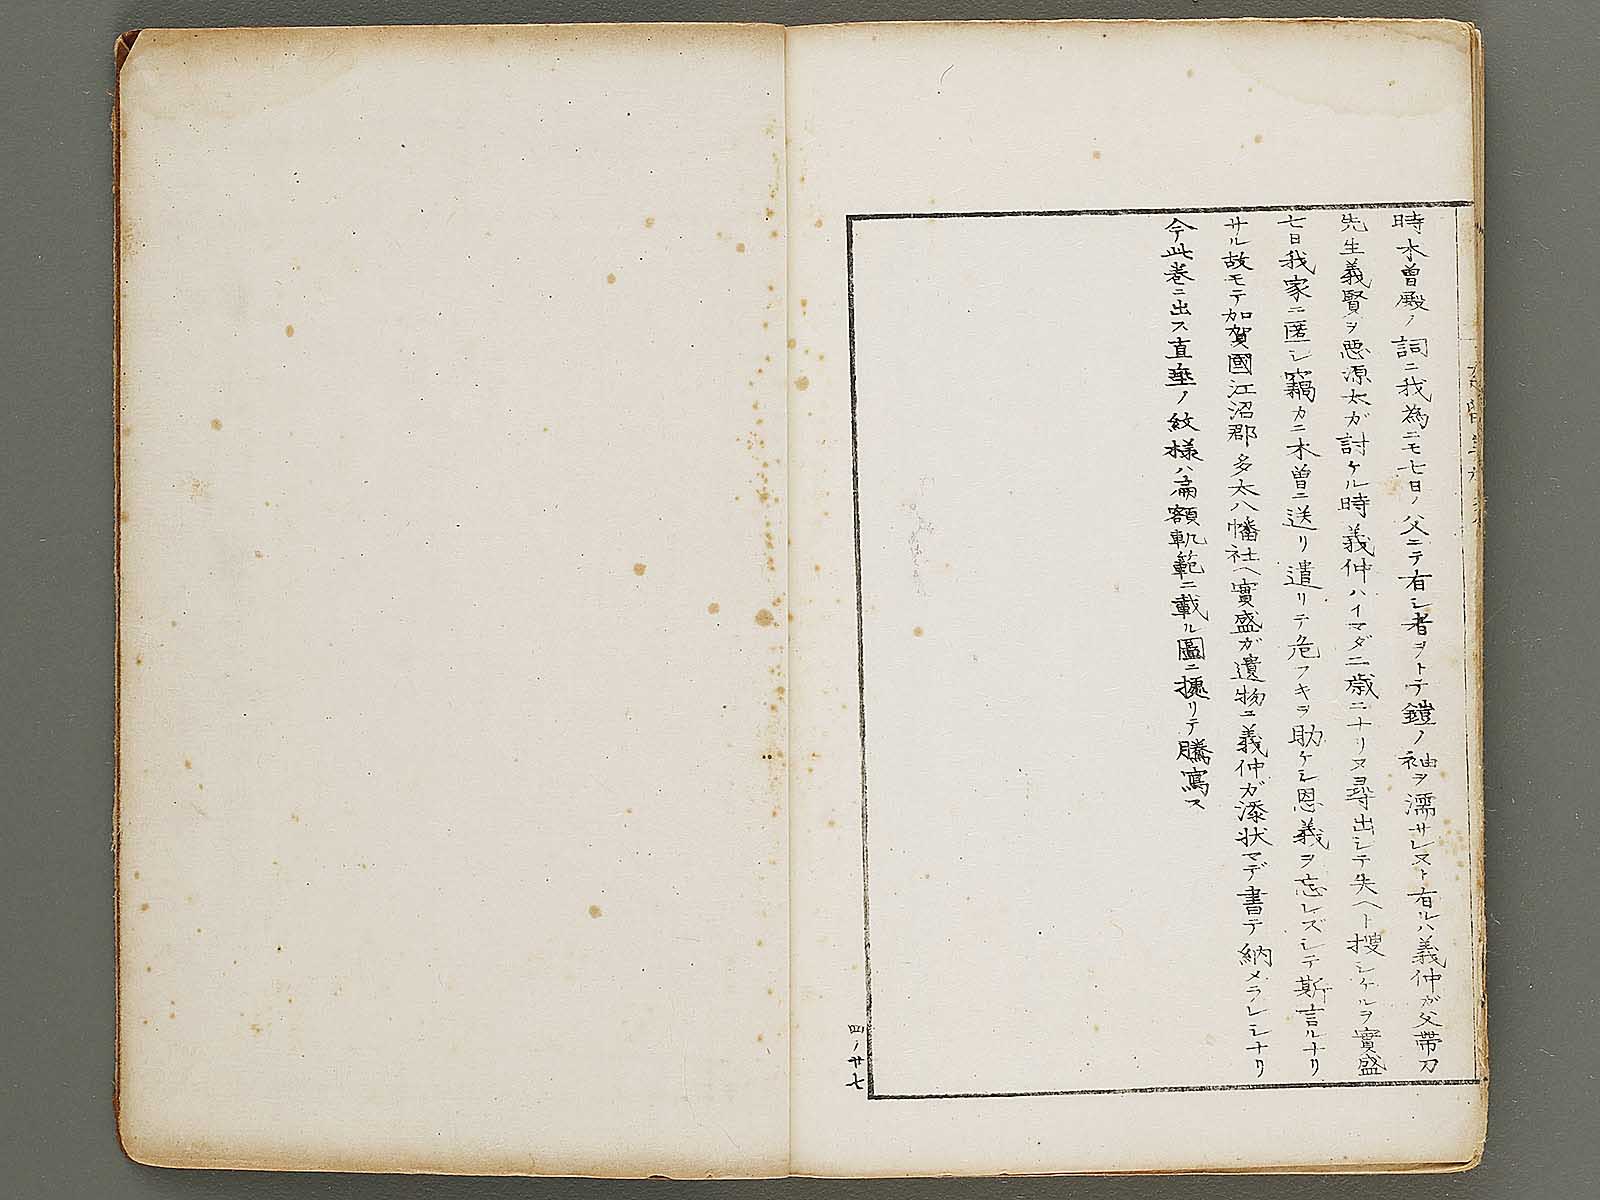 時木曽殿ノ詞ニ我為ニモ七日ノ父ニテ有シ者ヲトテ鎧ノ袖ヲ濡サレヌト有ルハ義仲ガ父帯刀
先生義賢ヲ悪源太ガ討ケル時義仲ハイマダ二歳ニナリヌ尋出シテ失ヘト捜シケルヲ實盛
七日我家ニ匿シ竊カニ木曽ニ送リ遣リテ危フキヲ助ケシ恩義ヲ忘レズシテ斯言ルナリ
サル故モテ加賀國江沼郡多太八幡社ヘ實盛ガ遺物ニ義仲ガ添状マデ書テ納メラレシナリ
今此巻ニ出ス直垂ノ紋様ハ扁額軌範ニ載ル圖ニ據リテ騰寫ス
四ノ廿七